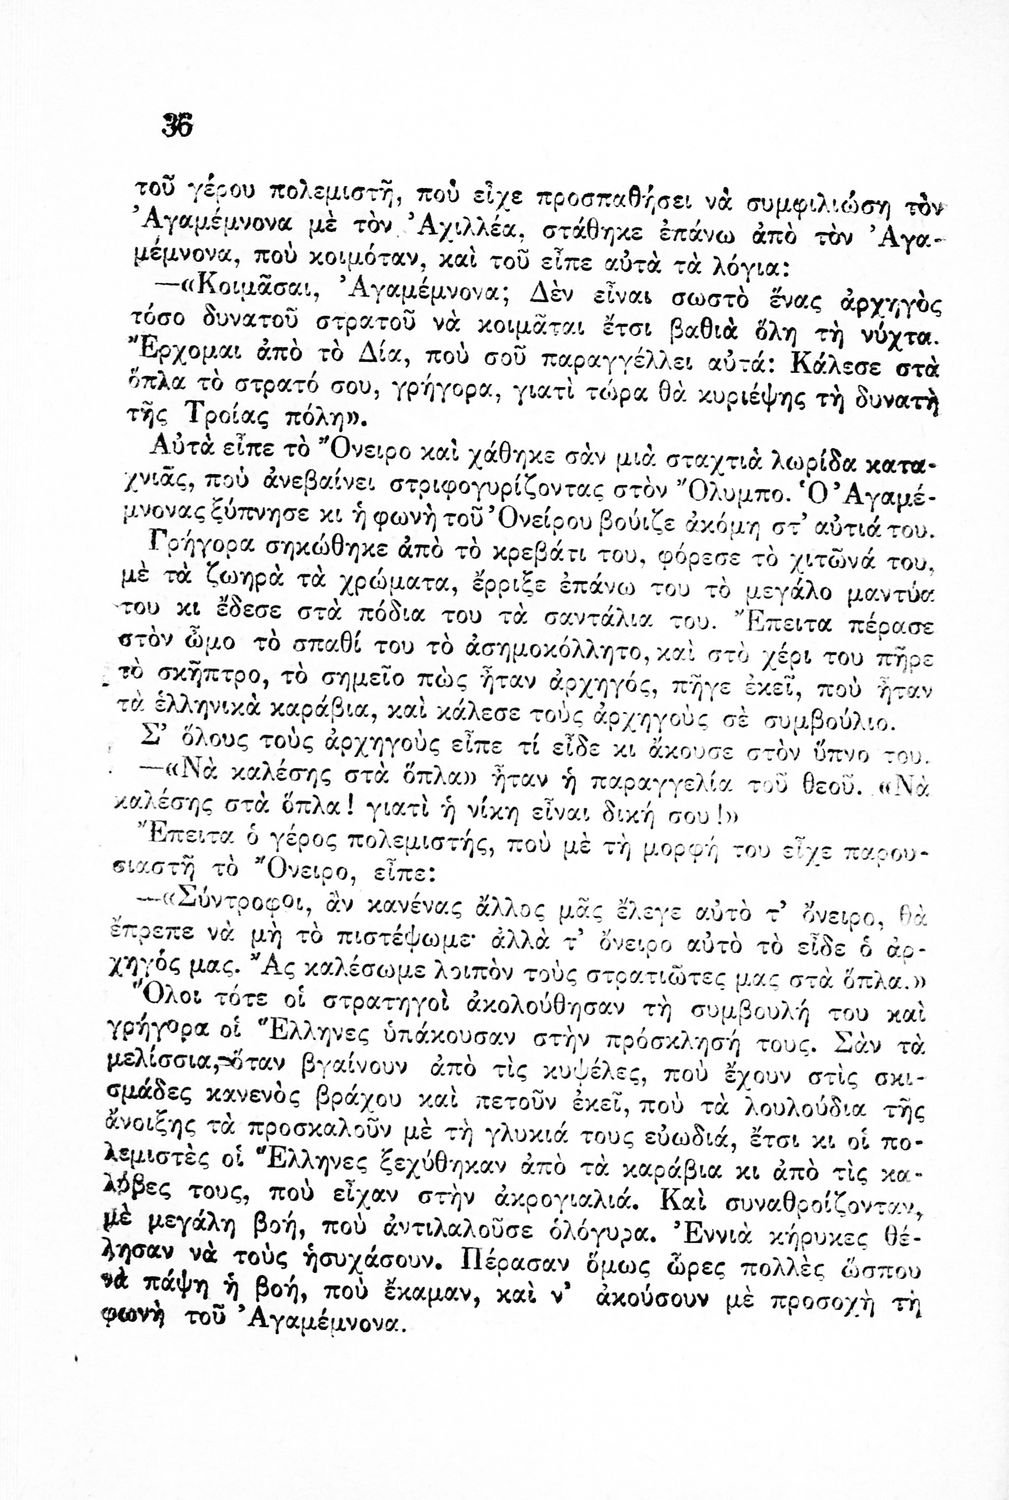 36
τοῦ γέρου πολεμιστῆ, ποὺ εἶχε προσπαθήσει νὰ συμφιλιώση τὸν
Ἀγαμέμνονα μὲ τὸν Ἀχιλλέα, στάθηκε ἐπάνω ἀπὸ τὸν Ἀγα-
μέμνονα, ποὺ κοιμόταν, καὶ τοῦ εἶπε αὐτὰ τὰ λόγια:
—«Κοιμᾶσαι, Ἀγαμέμνονα; Δὲν εἶναι σωστὸ ἕνας ἀρχηγὸς
τόσο δυνατοῦ στρατοῦ νὰ κοιμᾶται ἔτσι βαθιὰ ὅλη τὴ νύχτα.
Ἔρχομαι ἀπὸ τὸ Δία, ποὺ σοῦ παραγγέλλει αὐτά: Κάλεσε στὰ
ὅπλα τὸ στρατό σου, γρήγορα, γιατὶ τώρα θὰ κυριέψης τὴ δυνατὴ
τῆς Τροίας πόλη».
Αὐτὰ εἶπε τὸ Ὄνειρο καὶ χάθηκε σὰν μιὰ σταχτιὰ λωρίδα κατα-
χνιᾶς, ποὺ ἀνεβαίνει στριφογυρίζοντας στὸν Ὄλυμπο. Ὁ Ἀγαμέ-
μνονας ξύπνησε κι ἡ φωνὴ τοῦ Ὀνείρου βούιζε ἀκόμη στ’ αὐτιά του.
Γρήγορα σηκώθηκε ἀπὸ τὸ κρεβάτι του, φόρεσε τὸ χιτῶνά του,
μὲ τὰ ζωηρὰ τὰ χρώματα, ἔρριξε ἐπάνω του τὸ μεγάλο μαντύα
του κι ἔδεσε στὰ πόδια του τὰ σαντάλια του. Ἔπειτα πέρασε
στὸν ὦμο τὸ σπαθί του τὸ ἀσημοκόλλητο, καὶ στὸ χέρι του πῆρε
τὸ σκῆπτρο, τὸ σημεῖο πὼς ἦταν ἀρχηγός, πῆγε ἐκεῖ, ποὺ ἦταν
τὰ ἑλληνικὰ καράβια, καὶ κάλεσε τοὺς ἀρχηγοὺς σὲ συμβούλιο.
Σ’ ὅλους τοὺς ἀρχηγοὺς εἶπε τί εἶδε κι ἄκουσε στὸν ὕπνο του.
—«Νὰ καλέσης στὰ ὅπλα» ἦταν ἡ παραγγελία τοῦ θεοῦ. «Νὰ
καλέσης στὰ ὅπλα! γιατὶ ἡ νίκη εἶναι δική σου!»
Ἔπειτα ὁ γέρος πολεμιστής, ποὺ μὲ τὴ μορφή του εἶχε παρου-
σιαστῆ τὸ Ὄνειρο, εἶπε:
—«Σύντροφοι, ἂν κανένας ἄλλος μᾶς ἔλεγε αὐτὸ τ’ ὄνειρο, θὰ
ἔπρεπε νὰ μὴ τὸ πιστέψωμε· ἀλλὰ τ’ ὄνειρο αὐτὸ τὸ εἶδε ὁ ἀρ-
χηγός μας. Ἂς καλέσωμε λοιπὸν τοὺς στρατιῶτες μας στὰ ὅπλα.»
Ὅλοι τότε οἱ στρατηγοὶ ἀκολούθησαν τὴ συμβουλή του καὶ
γρήγορα οἱ Ἕλληνες ὑπάκουσαν στὴν πρόσκλησή τους. Σὰν τὰ
μελίσσια, ὅταν βγαίνουν ἀπὸ τὶς κυψέλες, ποὺ ἔχουν στὶς σκι-
σμάδες κανενὸς βράχου καὶ πετοῦν ἐκεῖ, ποὺ τὰ λουλούδια τῆς
ἄνοιξης τὰ προσκαλοῦν μὲ τὴ γλυκιά τους εὐωδιά, ἔτσι κι οἱ πο-
λεμιστὲς οἱ Ἕλληνες ξεχύθηκαν ἀπὸ τὰ καράβια κι ἀπὸ τὶς κα-
λύβες τους, ποὺ εἶχαν στὴν ἀκρογιαλιά. Καὶ συναθροίζονταν,
μὲ μεγάλη βοή, ποὺ ἀντιλαλοῦσε ὁλόγυρα. Ἐννιὰ κήρυκες θέ-
λησαν νὰ τοὺς ἡσυχάσουν. Πέρασαν ὅμως ὧρες πολλὲς ὥσπου
νὰ πάψη ἡ βοή, ποὺ ἔκαμαν, καὶ ν’ ἀκούσουν μὲ προσοχὴ τὴ
φωνὴ τοῦ Ἀγαμέμνονα.